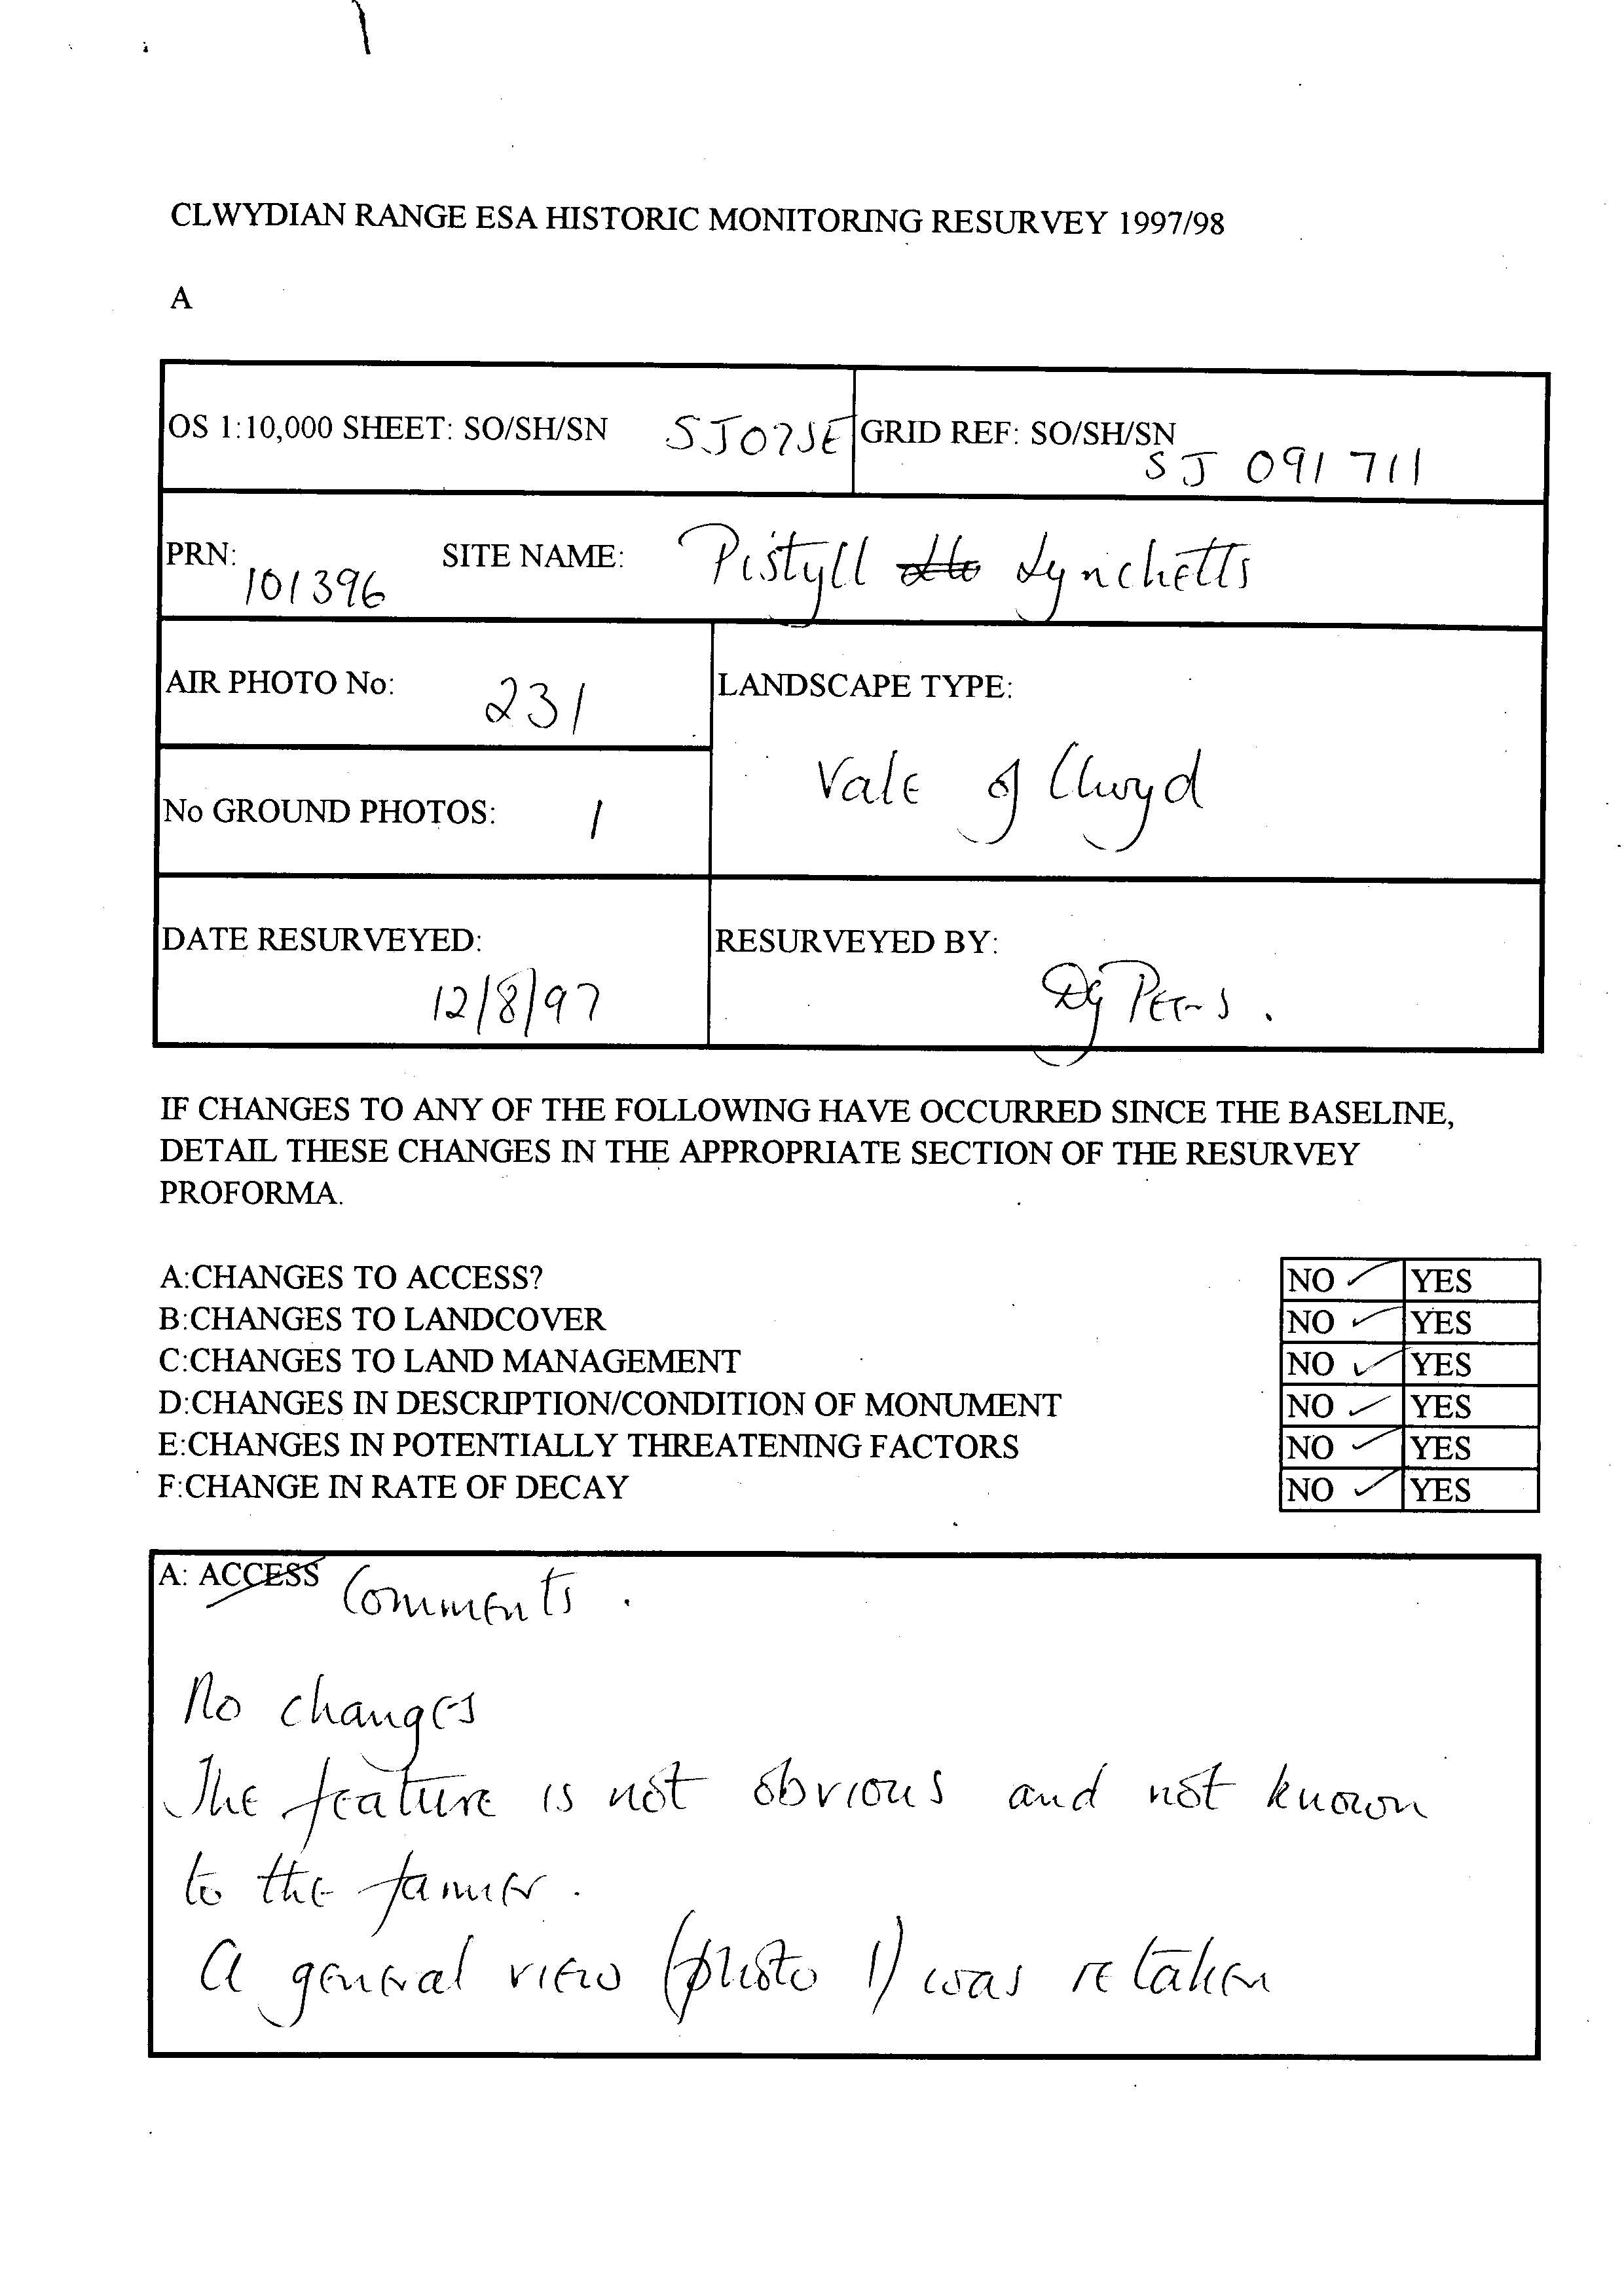 CLWYDIAN RANGE ESA HISTORIC MONITORING RESURVEY 1997/98
A
OS 1:10,000 SHEET: SO/SH/SN SJ07SE
GRID REF: SO/SH/SN SJ 091 711
PRN: 101396 SITE NAME: Pistyll Lynchetts
AIR PHOTO No: 231
LANDSCAPE TYPE:
Vale of Clwyd
No GROUND PHOTOS: 1
DATE RESURVEYED:
12/8/97
RESURVEYED BY:
DG
IF CHANGES TO ANY OF THE FOLLOWING HAVE OCCURRED SINCE THE BASELINE,
DETAIL THESE CHANGES IN THE APPROPRIATE SECTION OF THE RESURVEY
PROFORMA.
A:CHANGES TO ACCESS? NO ✓ YES
B:CHANGES TO LANDCOVER NO ✓ YES
C:CHANGES TO LAND MANAGEMENT NO ✓ YES
D:CHANGES IN DESCRIPTION/CONDITION OF MONUMENT NO ✓ YES
E:CHANGES IN POTENTIALLY THREATENING FACTORS NO ✓ YES
F:CHANGE IN RATE OF DECAY NO ✓ YES
A: ACCESS Comments.
No changes
The feature is not obvious and not known
to the farmer.
A general view (photo 1) was retaken